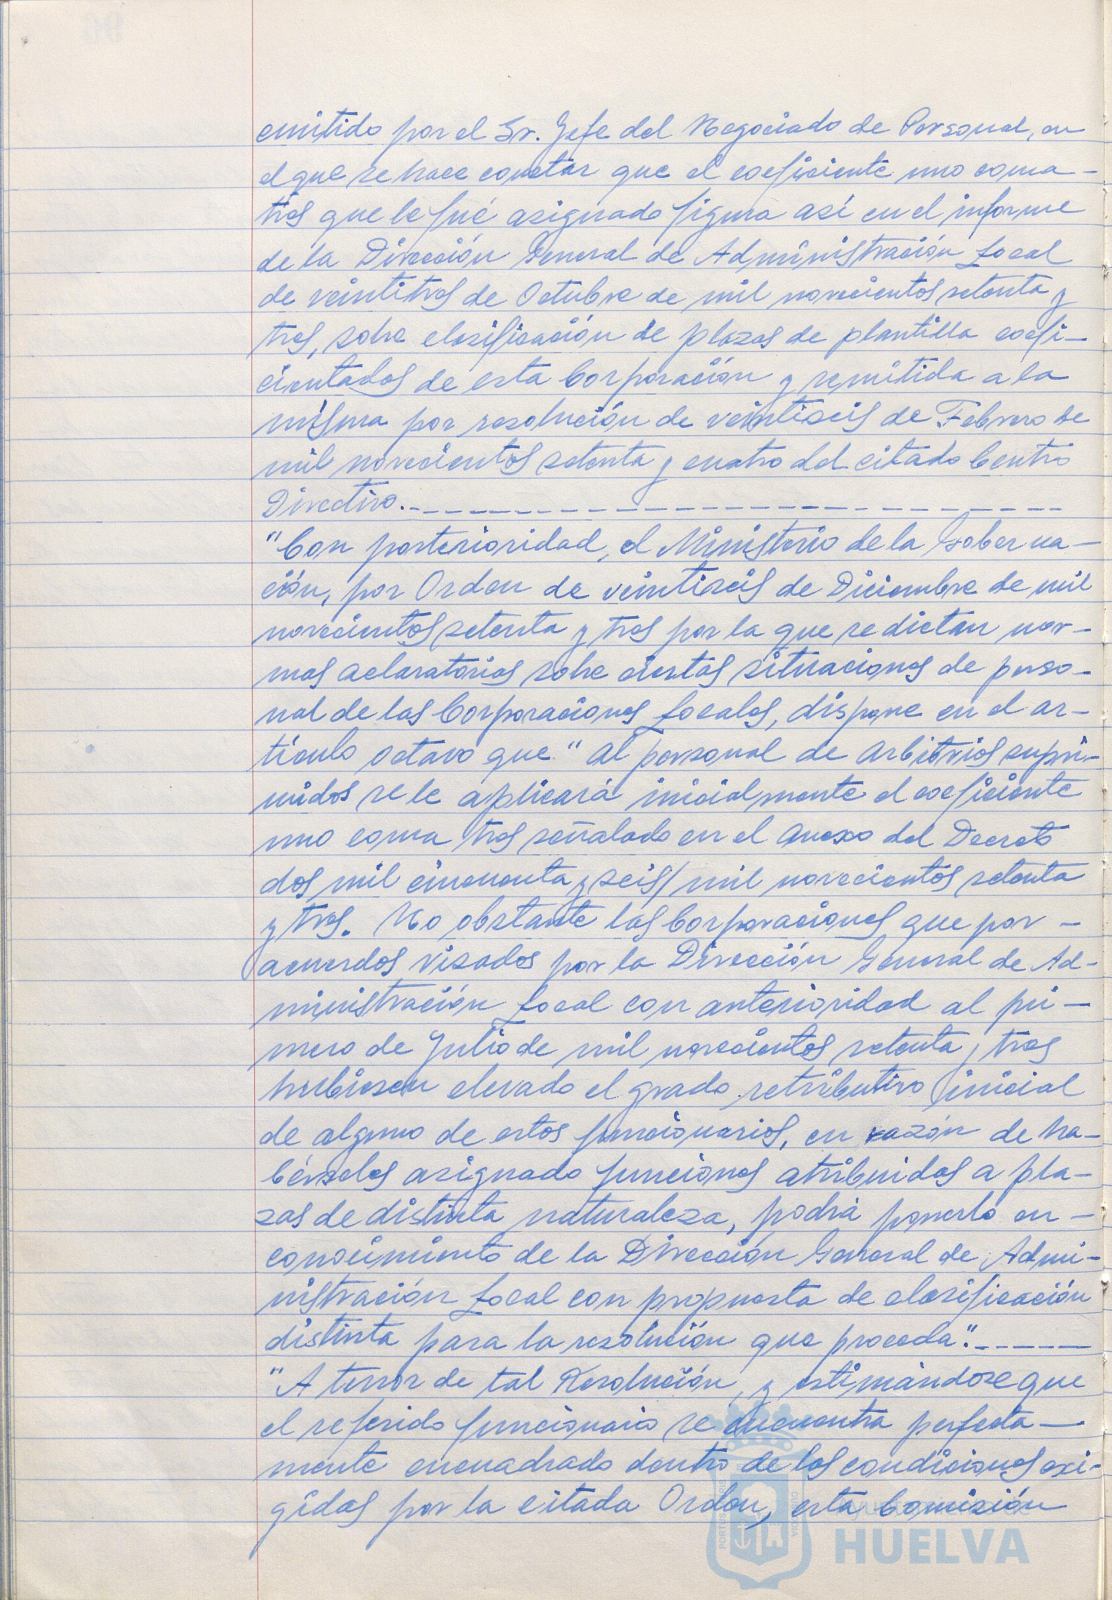 emitido por el Sr. Jefe del Negociado de Personal, en
el que se hace constar que el coeficiente uno coma -
tres que le fué asignado figura así en el informe
de la Dirección General de Administración Local
de veintitres de Octubre de mil novecientos setenta y
tres, sobre clasificación de plazas de plantilla coefi-
cientadas de esta Corporación y remitida a la
misma por resolución de veintiseis de Febrero de
mil novecientos setenta y cuatro del citado Centro
Directivo.-------------------------
"Con posterioridad, el Ministerio de la Goberna-
ción, por Orden de veintiseis de Diciembre de mil
novecientos setenta y tres por la que se dictan nor-
mas aclaratorias sobre ciertas situaciones de perso-
nal de las Corporaciones Locales, dispone en el ar-
tículo octavo que "al personal de arbitrios supri-
midos se le aplicará inicialmente el coeficiente
uno coma tres señalado en el anexo del Decreto
dos mil cincuenta y seis/ mil novecientos setenta
y tres. No obstante las Corporaciones que por -
acuerdos visados por la Dirección General de Ad-
ministración Local con anterioridad al pri-
mero de Julio de mil novecientos setenta y tres
hubiesen elevado el grado retributivo inicial
de alguno de estos funcionarios, en razón de ha-
bérseles asignado funciones atribuidas a pla-
zas de distinta naturaleza, podrá ponerlo en -
conocimiento de la Dirección General de Admi-
nistración Local con propuesta de clasificación
distinta para la resolución que proceda".------
"A tenor de tal Resolución, y estimándose que
el referido funcionario se encuentra perfecta-
mente encuadrado dentro de las condiciones exi-
gidas por la citada Orden, esta Comisión
HUELVA